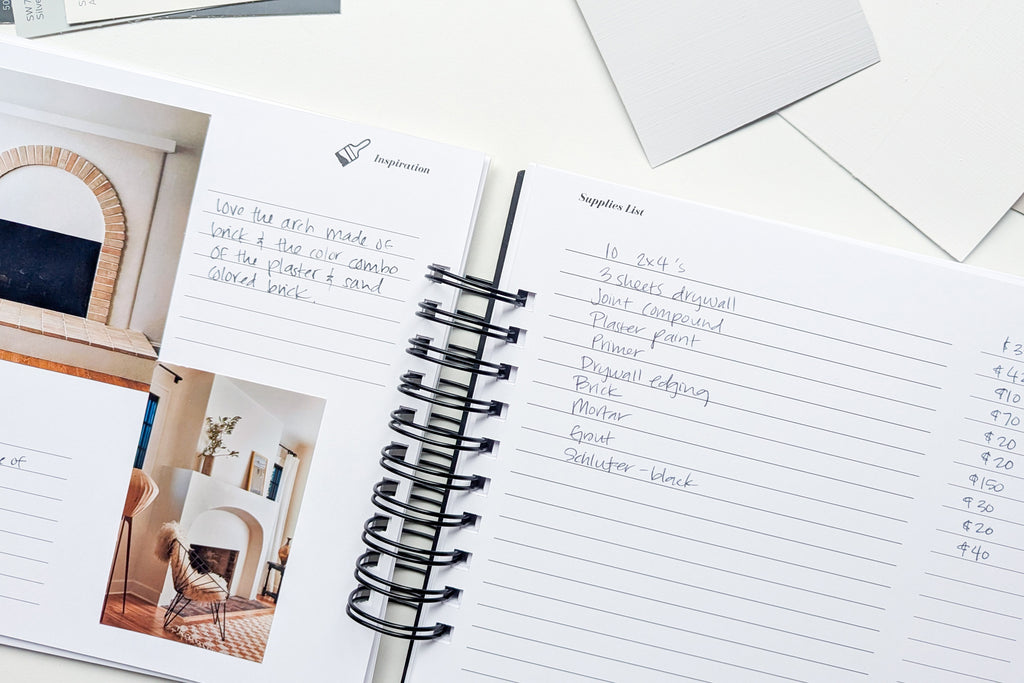 SW 7
Silver
Inspiration
love the arch made of
brick & the color combo
of the plaster & sand
colored brick.
e of
Supplies List
10 2x4's
3 sheets drywall
Joint compound
Plaster paint
Primer
Drywall edging
Brick
Mortar
Grout
Schluter-black
$3
$42
$10
$70
$20
$20
$150
$30
$20
$40